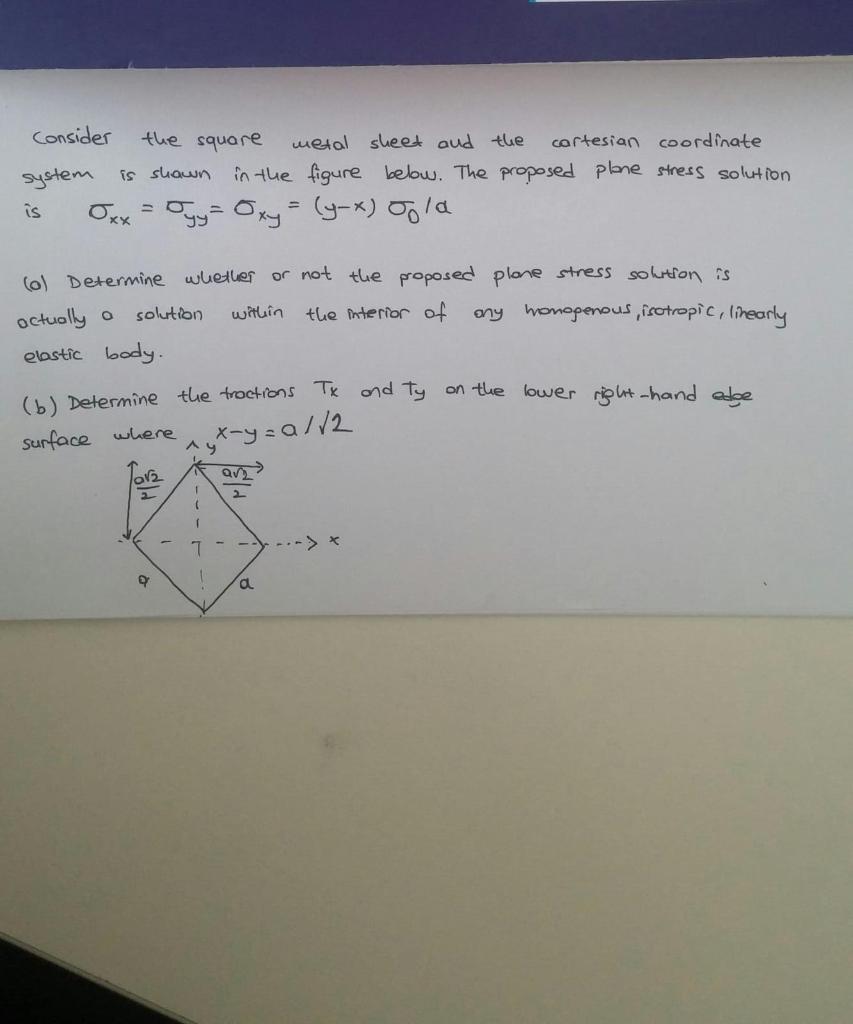 Consider the square metal sheet and the cartesian coordinate
system is shown in the figure below. The proposed plane stress solution
is σxx = σyy = σxy = (y-x) σ0/a
(a) Determine whether or not the proposed plane stress solution is
actually a solution within the interior of any homogenous, isotropic, linearly
elastic body.
(b) Determine the tractions Tx and Ty on the lower right-hand edge
surface where x-y = a/√2
y
a√2/2 a√2/2
x
a a